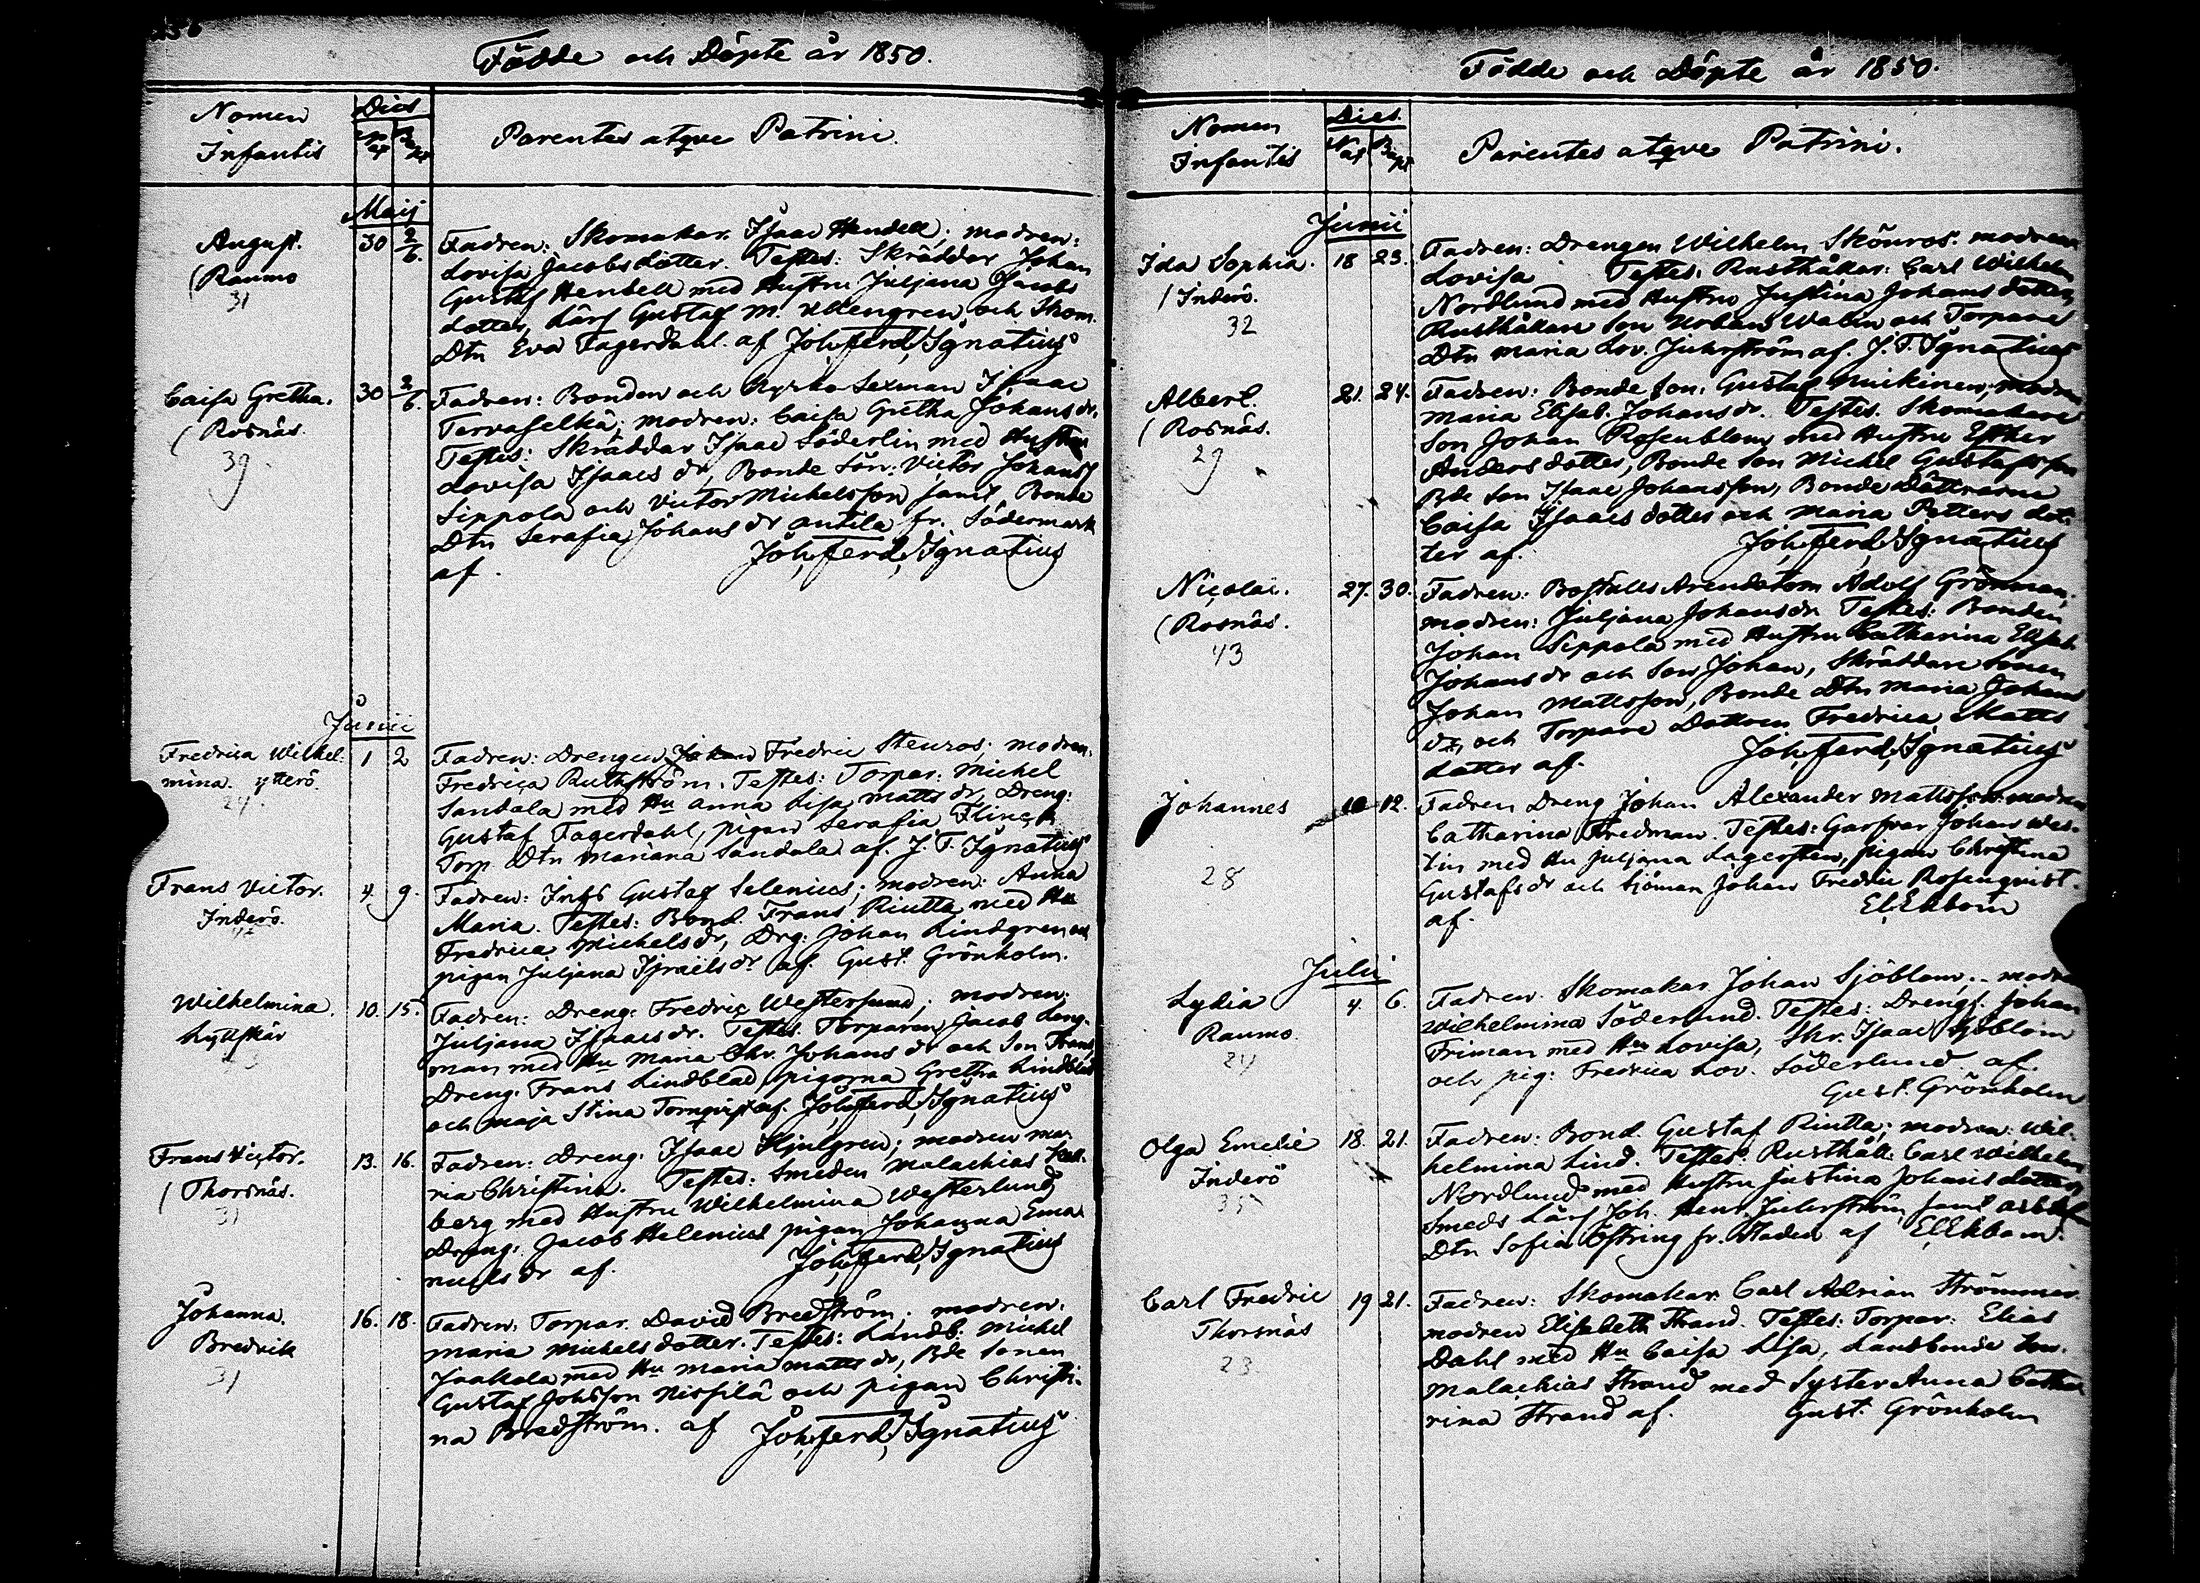 Födde och Döpte år 1850.
Nomen Infantis
Dies
Nat Bapt
Parentes atqve Patrini.
Maij
August.
(Raumo
31
30 2/6.
Fadren: Skomakar. Isaac Hendell; modren:
Lovisa Jacobsdotter. Testes: Skräddar Johan
Gustaf Hendell med Hustru Juljana Jacobs
dotter, Lärl Gustaf M. Ullengren och Skom.
Dtn Eva Fagerdahl. af Joh. Ferd. Ignatius
Caisa Gretha.
(Rosnäs.
39
30 2/6.
Fadren: Bonden och Kyrko Sexman Isaac
Tervaselkä; modren: Caisa Gretha Johansdr.
Testes: Skräddar Isaac Söderlin med Hustru
Lovisa Isaacs dr, Bonde Sön: Victor Johanss
Sippola och Victor Michelsson samt Bonde
Dtn Serafia Johans dr Antila fr. Södermark
af. Joh. Ferd. Ignatius
Junii
Fredrica Wilhel-
mina. Ytterö.
24.
1 2
Fadren: Drengen Johan Fredric Stenros; modren:
Fredrica Ruthström. Testes: Torpar: Michel
Sandala med Hu Anna Lisa Matts dr, Dreng:
Gustaf Fagerdahl, pigan Serafia Flinck
Torp. Dtn Mariana Sandala af. J. F. Ignatius
Frans Victor.
Inderö.
4. 9.
Fadren: Inhs Gustaf Selenius; modren: Anna
Maria. Testes: Bond. Frans Riutta med Hu
Fredrica Michels dr, Drg: Johan Lindgren och
pigan Juljana Israëls dr af. Gust. Grönholm.
Wilhelmina.
Lyttskär
10. 15.
Fadren: Dreng: Fredric Westersund; modren:
Juljana Isaacs dr. Testes. Torparen Jacob Leng-
man med Hu Maria Chr. Johans dr och Son Frans,
Dreng. Frans Lindblad, pigorna Gretha Lindblad
och Maja Stina Tornqvist af. Joh. Ferd. Ignatius
Frans Victor.
(Thorsnäs.
31
13. 16.
Fadren: Dreng. Isaac Hjulgren; modren Ma-
ria Christina. Testes: Smeden Malachias
berg med Hustru Wilhelmina Westerlund
Dreng: Jacob Helenius pigan Johanna Ema-
nuels dr af. Joh. Ferd. Ignatius
Johanna.
Bredvik
31
16. 18.
Fadren: Torpar. David Bredström; modren:
Maria Michelsdotter. Testes: Landb: Michel
Jaakola med Hu Maria Matts dr, Bde Sonen
Gustaf Johsson Nissilä och pigan Christi-
na Bredström. af Joh. Ferd. Ignatius
Födde och Döpte år 1850.
Nomen Infantis
Dies.
Nat Bapt
Parentes atqve Patrini.
Junii
Ida Sophia.
(Inderö.
32
18 23.
Fadren: Drengen Wilhelm Skönros. modren
Lovisa Testes: Rusthållar: Carl Wilhelm
Nordlund med Hustru Justina Johans dotter,
Rusthållare Son Urban Walin och Torpare
Dtn Maria Lov. Juhrström af. J. F. Ignatius
Albert.
(Rosnäs.
29
21. 24.
Fadren: Bonde son: Gustaf Muikinen; modren
Maria Elisab. Johansdr. Testes. Skomakare
Son Johan Rosenblom med Hustru Esther
Andersdotter, Bonde Son Michel Gustafsson
Bde Son Isaac Johansson, Bonde Döttrarne
Caisa Isaacs dotter och Maria Petters dot-
ter af. Joh. Ferd. Ignatius
Nicolai.
(Rosnäs.
43
27. 30.
Fadren: Boställs Arendatorn Adolf Grönman;
modren: Juljana Johansdr. Testes: Bonden
Johan Sippola med Hustru Catharina Elisab.
Johansdr och Son Johan, Skräddare Sönen
Johan Mattsson, Bonde Dtn Maria Johans
dr, och Torpare Dottren Fredrica Matts
dotter af. Joh. Ferd. Ignatius
Johannes
28
10 12.
Fadren Dreng Johan Alexander Mattsson modren
Catharina Fredman. Testes: Garfvar Johan Wes-
tin med Hu Juljana Lagersten, pigan Christina
Gustafsdr och Sjöman Johan Fredric Rosenqvist.
af. El. Ekbom
Julii
Lydia
Raumo.
24
4. 6.
Fadren: Skomakar Johan Sjöblom; modren
Wilhelmina Söderlund. Testes: Drengs: Johan
Friman med Hu Lovisa, Skr. Isaac Sjöblom
och pig: Fredrica Lov. Söderlund af.
Gust. Grönholm
Olga Emelie
Inderö
35
18. 21.
Fadren: Bond. Gustaf Riutta; modren: Wil-
helmina Lind. Testes: Rusthåll: Carl Wilhelm
Nordlund med Hustru Justina Johans dotter,
Smeds Lärl Joh. Henr. Juhrström samt
Dtn Sofia Östring fr. Staden af El. Ekbom.
Carl Fredric
Thorsnäs
23
19 21.
Fadren: Skomakar. Carl Adrian Strömmer.
modren Elisabeth Strand. Testes: Torpar: Elias
Dahl med Hu Caisa Lisa, Landbonde Son.
Malachias Strand med Syster Anna Catha
rina Strand af. Gust. Grönholm